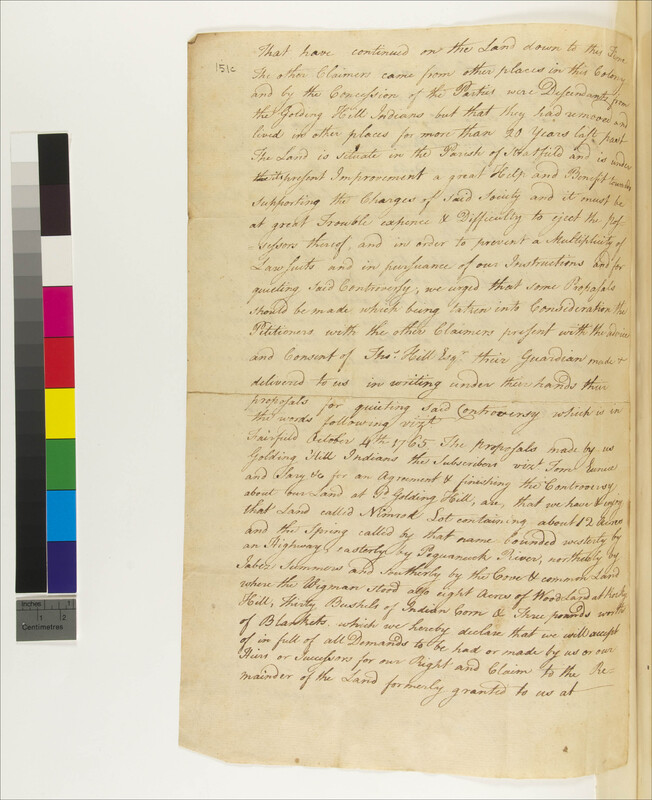 151c
That have continued on the Land down to this Time
The other Claimers came from other places in this Colony
and by the Concession of the Parties were Descendants from
the Golding Hill Indians but that they had removed and
lived in other places for more than 20 Years last past
The Land is situate in the Parish of Stratfield and is under
present Improvement a great Help and Benefit towards
supporting the Charges of said Society and it must be
at great Trouble expence & Difficulty to eject the pos
-sessors thereof, and in order to prevent a Multiplicity of
Law suits and in pursuance of our Instructions and for
quieting said Controversy, we urged that some Proposals
should be made which being taken into Consideration the
Petitioners with the other Claimers present with the advice
and Consent of Thos. Hill Esqr. their Guardian made &
delivered to us in writing under their hands their
proposals for quieting said Controversy which is in
the words following vizt
Fairfield October 4th 1765 The proposals made by us
Golding Hill Indians the Subscribers vizt Tom Eunice
and Sary &c for an Agreement & finishing the Controversy
about our Land at sd. Golding Hill, are, that we have & enjoy
that Land called Nimrod Lot containing about 12 Acres
and the Spring called by that name bounded westerly by
an Highway easterly by Poquanuck River, northerly by
Jabez Summers and Southerly by the Cove & common Land
where the Wigman stood also eight Acres of Wood Land at Rocky
Hill, thirty Bushels of Indian Corn & three pounds worth
of Blankets, which we hereby declare that we will accept
of in full of all Demands to be had or made by us or our
Heirs or Successors for our Right and Claim to the Re-
mainder of the Land formerly granted to us at
Inches 1
1 2
Centimetres